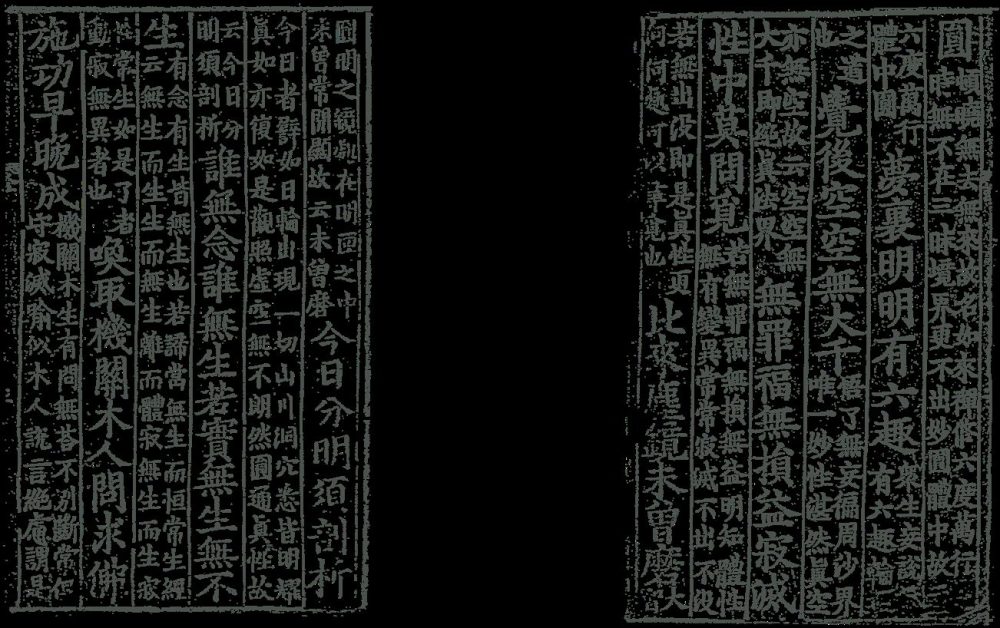 圓
滿無去無來故名如來禪修六度萬行
時無不在三昧境界更不出妙圓體中故
六度萬行
體中圓
夢裏明明有六趣
衆生妄說
有六趣輪
之道
也
覺後空空無大千
悟了無妄徧周沙界
唯一妙性湛然眞空
亦無空故云空空無
大千即純眞法界
無罪福無損益寂滅
性中莫問覓
若無罪福無損無益明知體性
無有變異常常寂滅不出不沒
若無出沒即是眞性更
問何處可以求覓也
比來塵鏡未曾磨
大
圓明之鏡處在明回之中
未曾常開顯故云未曾磨
今日分明須剖析
今日者辭如日輪出現一切山川洞穴悉皆明耀
眞如亦復如是觀照虛空無不朗然圓通眞性故
云今日分
明須剖析
誰無念誰無生若實無生無不
生
有念有生皆無生也若諦當無生而恒常生經
云無生而生生而無生離而體寂無生而生寂
性常生如是了者
動寂無異者也
喚取機關木人問求佛
施功早晚成
機關木生有問無荅不別斷常仁
守寂滅齊似木人說言絕慮謂是